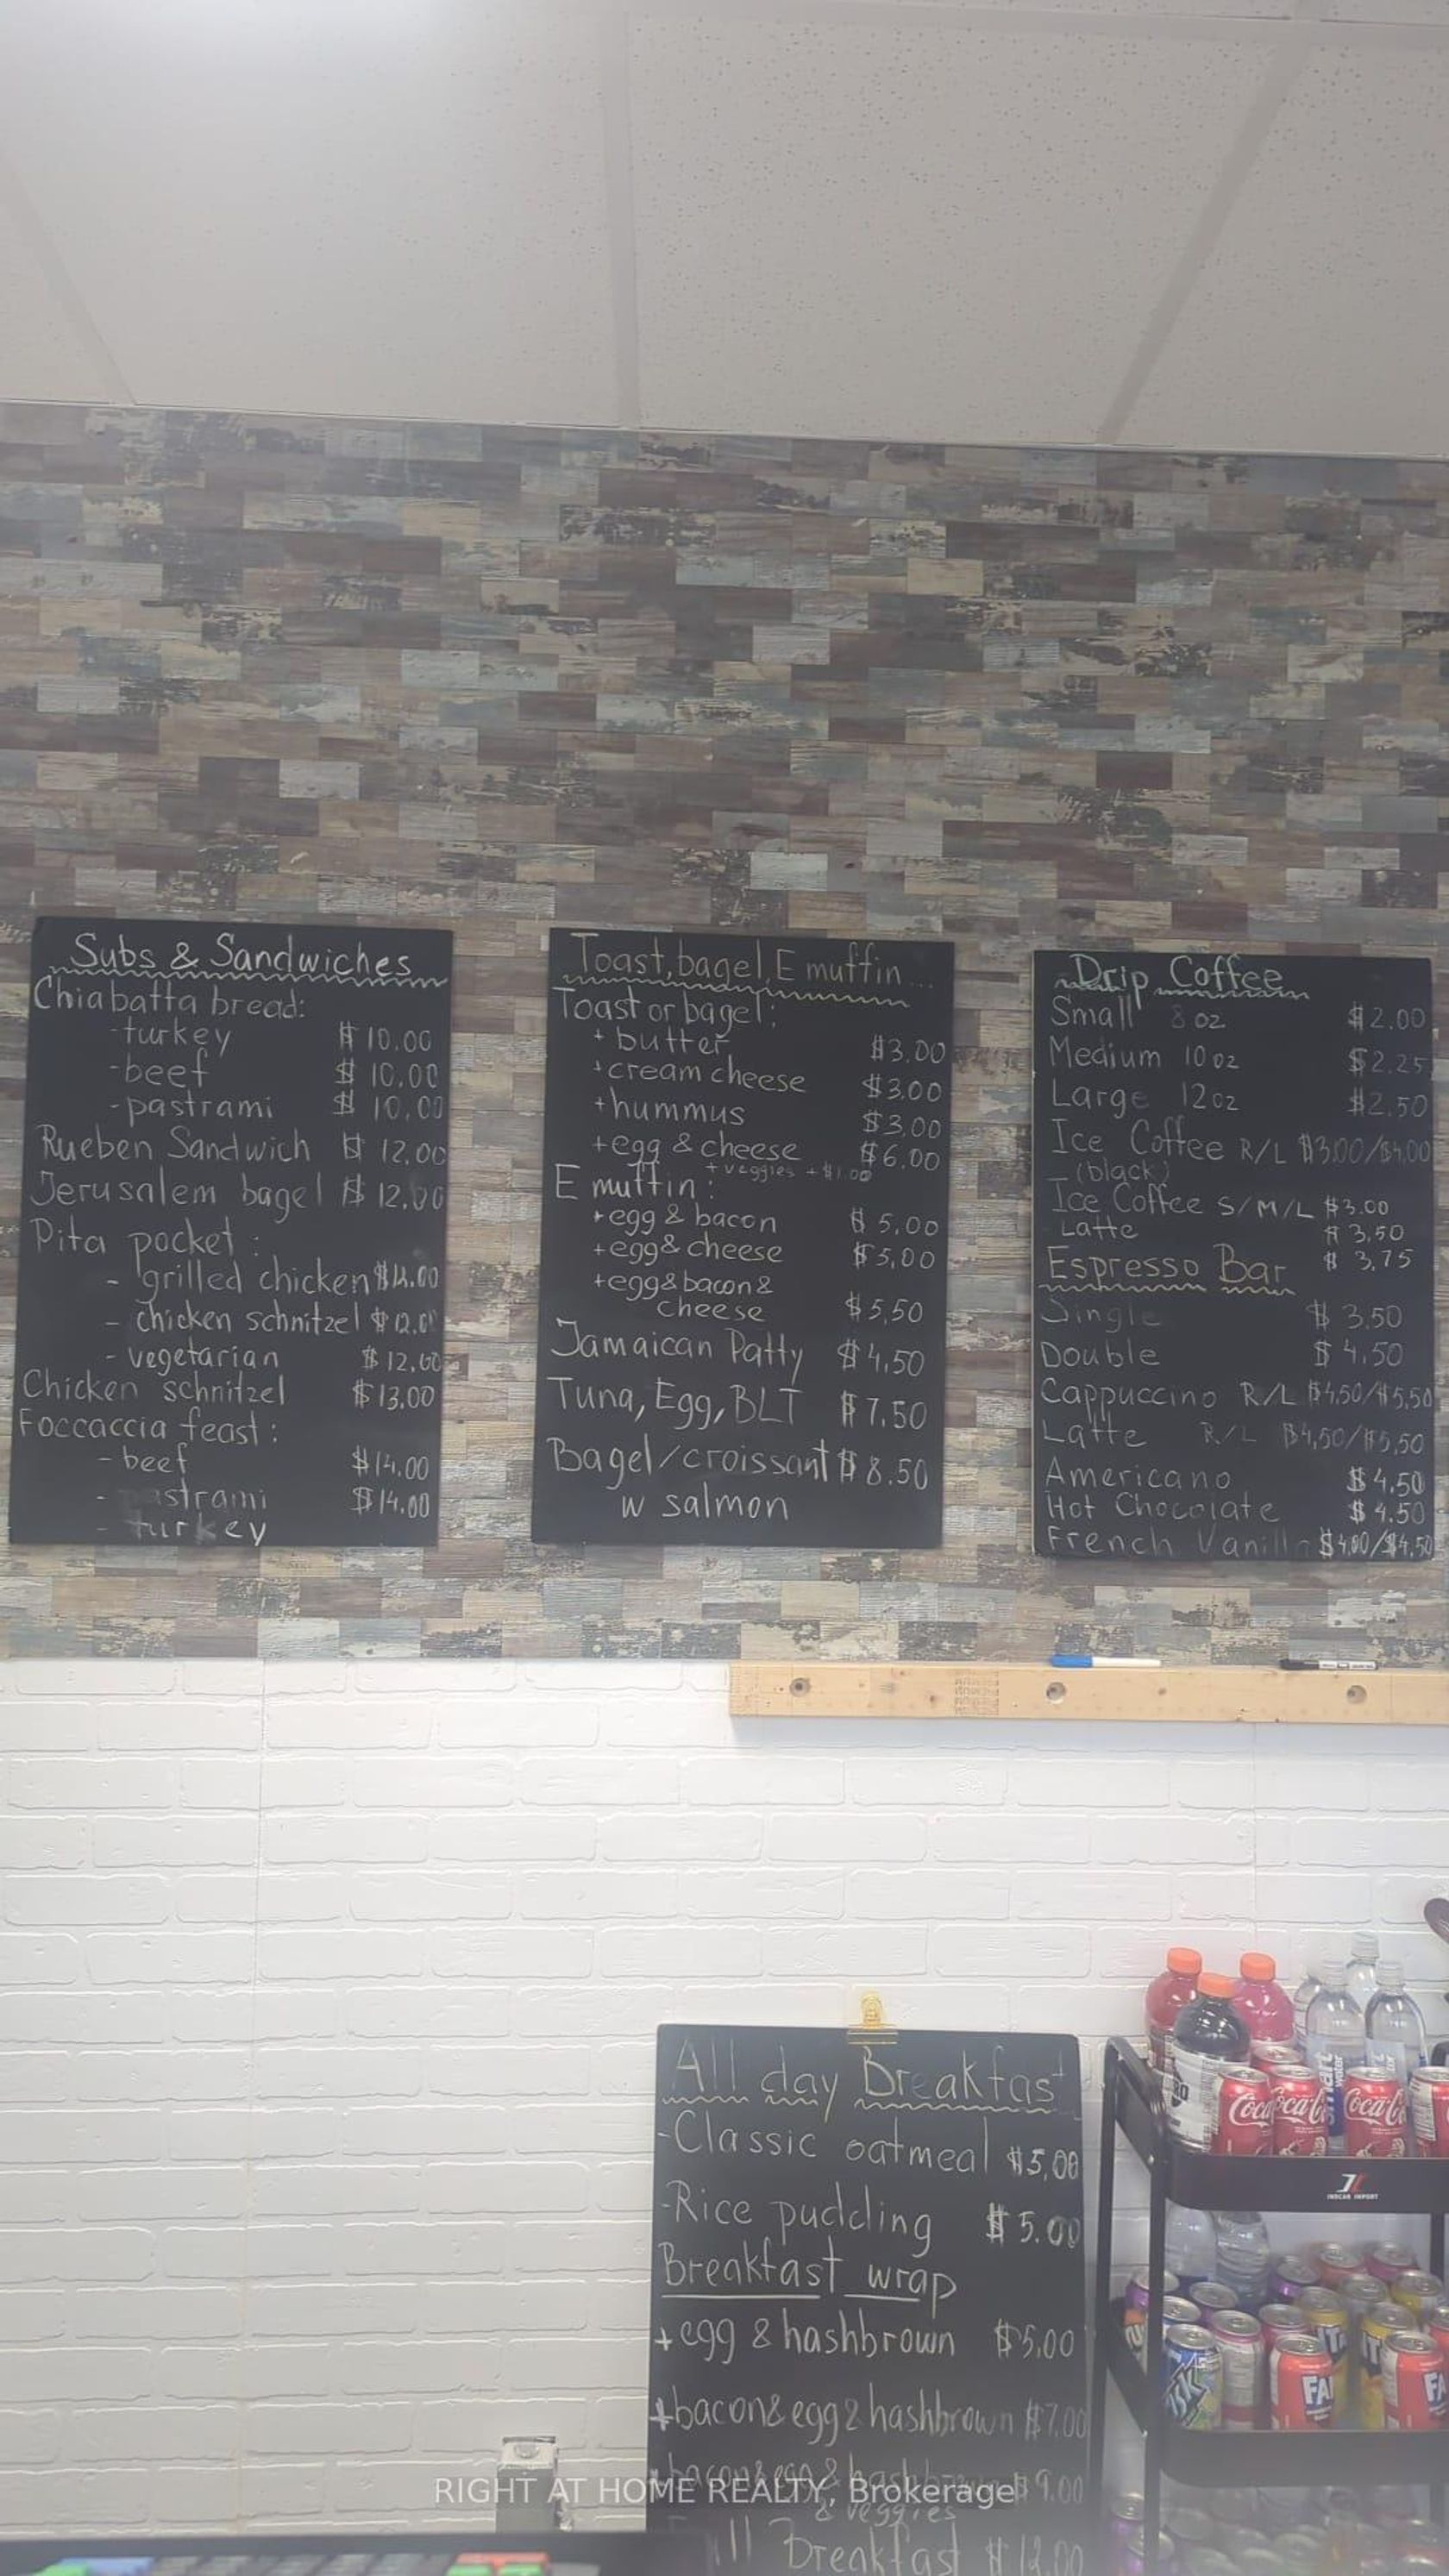 Subs & Sandwiches
Chiabatta bread:
-turkey $10.00
-beef $10.00
-pastrami $10.00
Rueben Sandwich $12.00
Jerusalem bagel $12.00
Pita pocket:
- grilled chicken
- chicken schnitzel $12.0
- vegetarian $12.00
Chicken schnitzel $13.00
Foccaccia feast:
- beef $14.00
- astrami $14.00
- turkey
Toast, bagel, E muffin...
Toast or bagel:
+ butter $3.00
+cream cheese $3.00
+hummus $3.00
+egg & cheese $6.00
+veggies +$1.00
E muffin:
+egg & bacon $5.00
+egg & cheese $5.00
+egg&bacon&
cheese $5.50
Jamaican Patty $4.50
Tuna, Egg, BLT $7.50
Bagel/croissant $8.50
w salmon
Drip Coffee
Small 8 oz $2.00
Medium 10 oz $2.25
Large 12 oz $2.50
Ice Coffee R/L $3.00/$4.00
-(black)
Ice Coffee S/M/L $3.00
Latte $3.50
$3.75
Espresso Bar
Single $3.50
Double $4.50
Cappuccino R/L $4.50/$5.50
Latte R/L $4.50/$5.50
Americano $4.50
Hot Chocolate $4.50
French Vanill $4.00/$4.50
All day Breakfast
-Classic oatmeal $5.00
-Rice pudding $5.00
Breakfast wrap
+egg & hashbrown $5.00
+bacon& egg & hashbrown $7.00
+bacon&egg & hashbrown $9.00
& veggies
Breakfast
Coca
Coca
Coca
smart
water
INOCAN IMPORT
FA
FA
RIGHT AT HOME REALTY, Brokerage